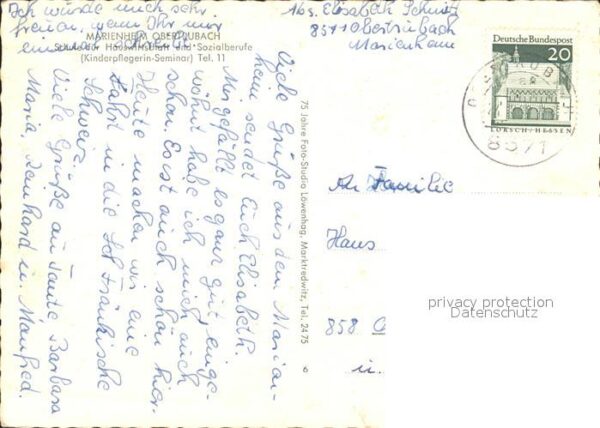 Ich würde mich sehr
freuen, wenn Ihr mir
MARIENHEIM OBERTRUBACH
Schule für Hauswirtschaft und Sozialberufe
(Kinderpflegerin-Seminar) Tel. 11
Viele Grüße aus dem Marien-
heim sendet Euch Elisabeth.
Mir gefällt es ganz gut, einge-
wöhnt habe ich mich auch
schon. Es ist auch schön hier.
Heute machen wir eine
Fahrt in die Fränkische
Schweiz.
Viele Grüße an Tante Barbara
Maria, Reinhard u. Manfred.
75 Jahre Foto-Studio Löwenhag, Marktredwitz, Tel. 2475
Abs. Elisabeth
8571 Obertrubach
Marienheim
Deutsche Bundespost
20
LORSCH/HESSEN
8571
An Familie
Hans
858
privacy protection
Datenschutz